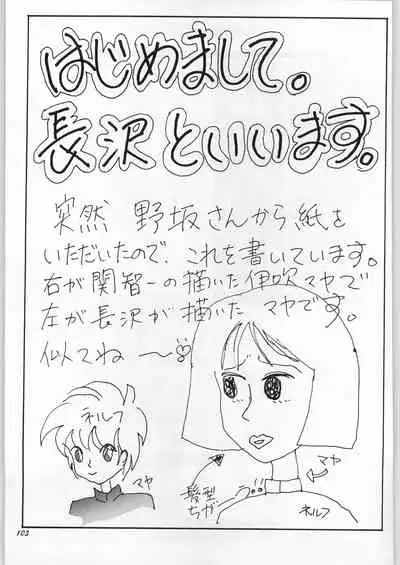 はじめまして。
長沢といいます。
突然 野坂さんから紙を
いただいたので、これを書いています。
右が関智一の描いた伊吹マヤで
左が長沢が描いた マヤです。
似てね〜
ネルフ
マヤ
マヤ
髪型
ちがう!!
ネルフ
102